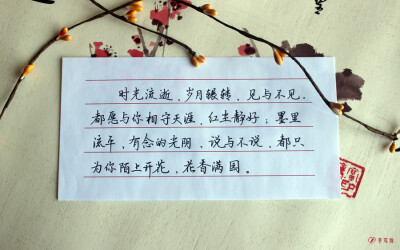 时光流逝，岁月辗转，见与不见，
都愿与你相守天涯，红尘静好；墨里
流年，有念的光阴，说与不说，都只
为你陌上开花，花香满园。
手写馆